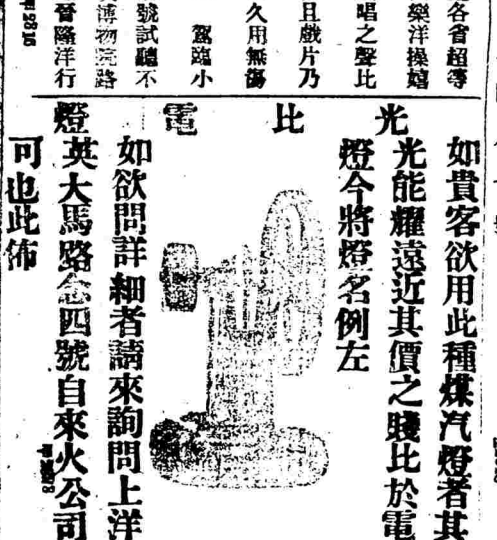 各省超等
樂洋操嬉
唱之聲比
且戲片乃
久用無傷
駕臨小
號試聽不
博物院路
晉隆洋行
光比電燈
如貴客欲用此種煤汽燈者其
光能耀遠近其價之賤比於電
燈今將燈名例左
如欲問詳細者請來詢問上洋
英大馬路念四號自來火公司
可也此佈